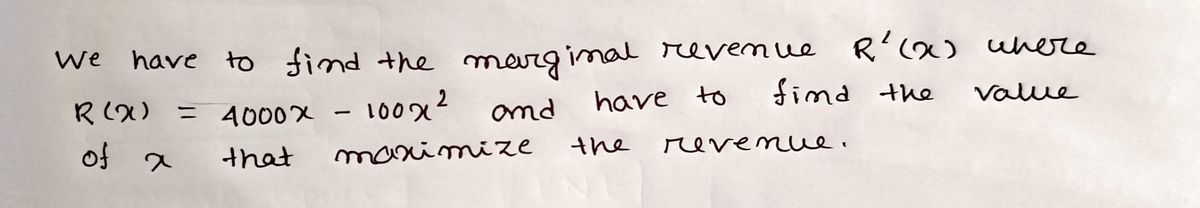 We have to find the marginal revenue R'(x) where
R(x) = 4000x - 100x² and have to find the value
of x that maximize the revenue.